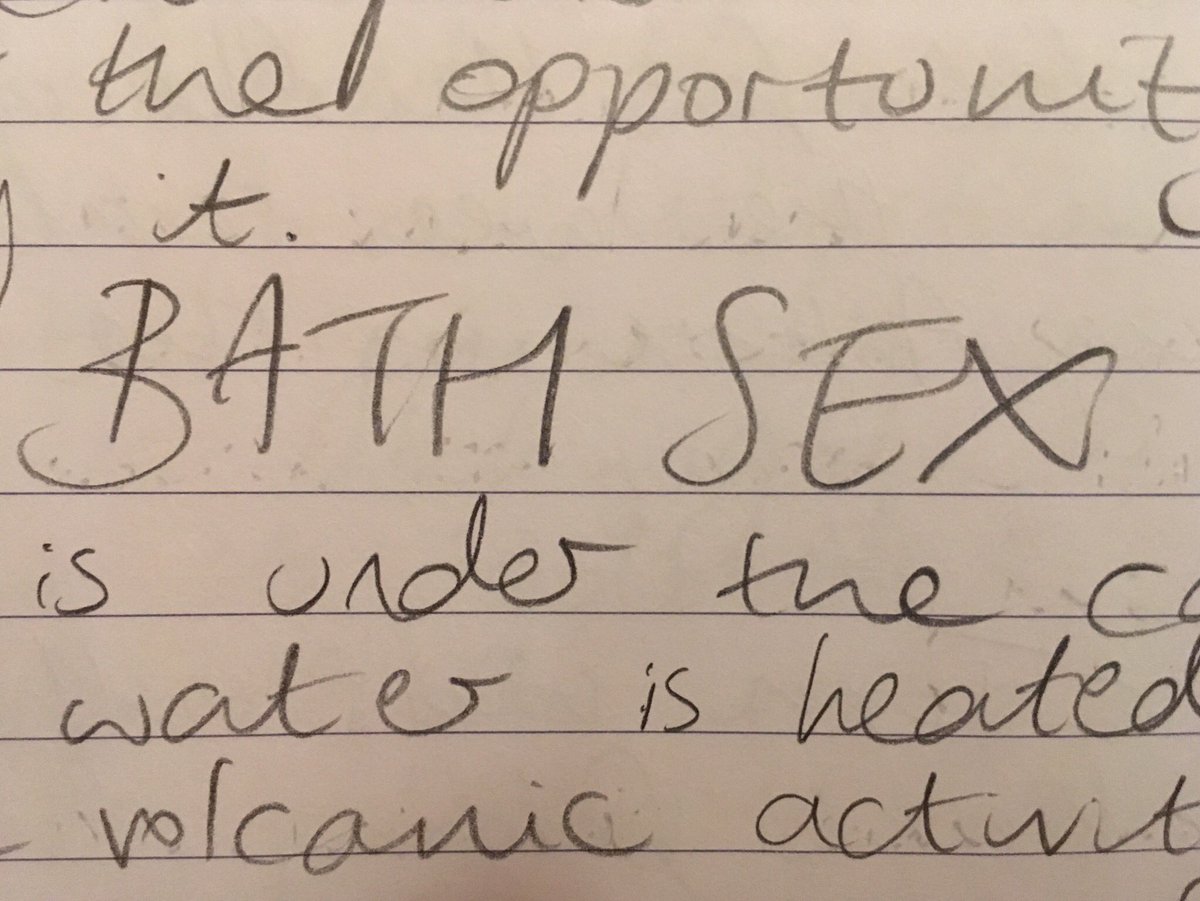 the opportunit
it.
BATH SEX
is under the co
water is heated
volcanic activit